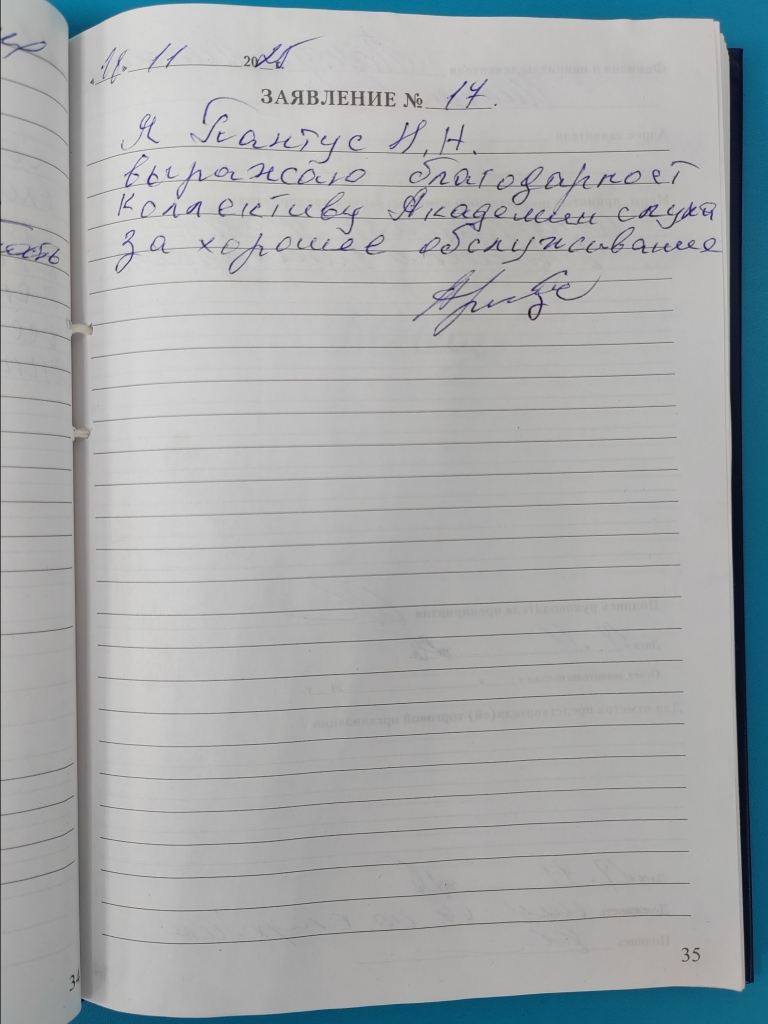 11 2025
ЗАЯВЛЕНИЕ № 17.
Я Н.Н.
выражаю благодарност
коллективу Академии слуха
за хорошее обслуживание
35